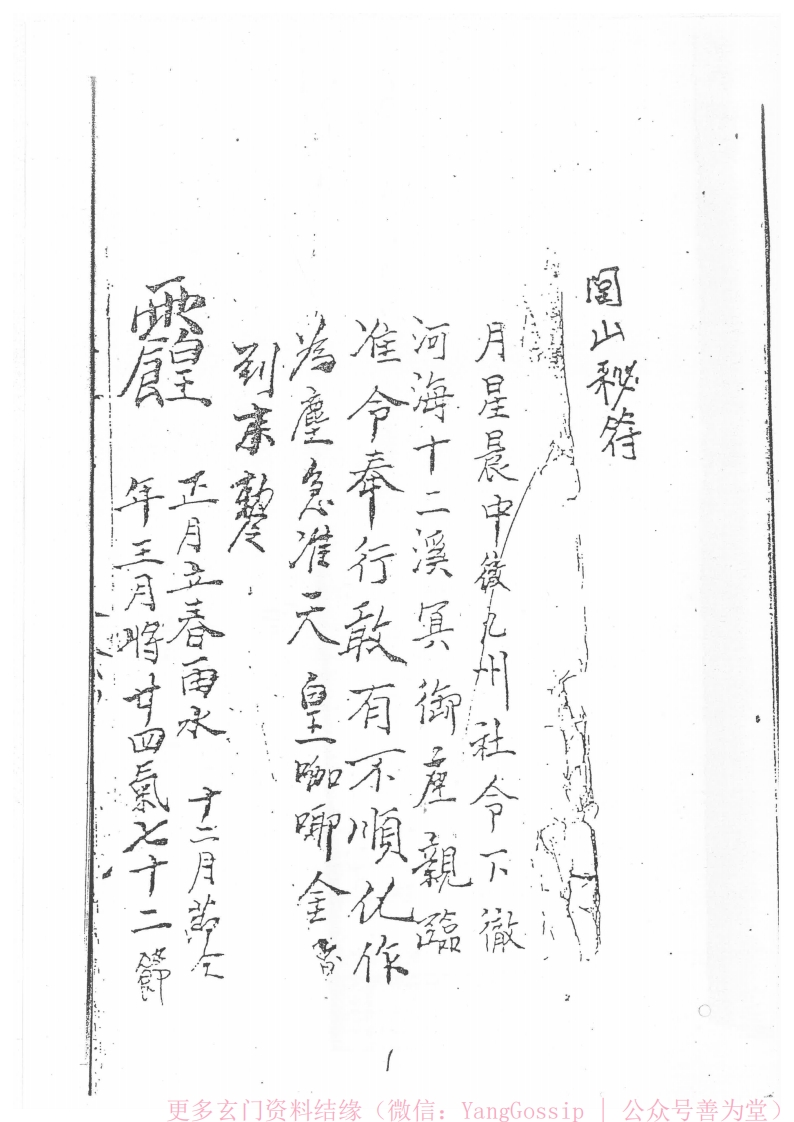 閭山秘符
月星晨中徹九州社令下徹
河海十二溪冥御座親臨
准令奉行敢有不順化作
為塵急准天皇咖唧金
到奉勅
正月立春雨水 十二月節令
年三月將廿四氣七十二節
1
更多玄门资料结缘（微信：YangGossip | 公众号善为堂）